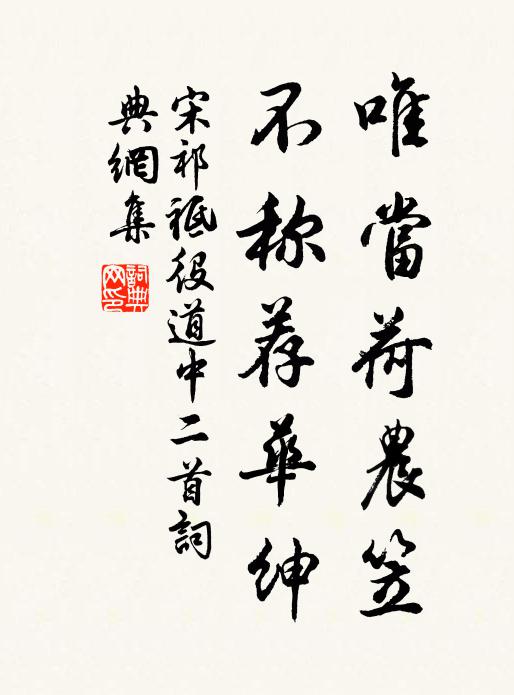 唯當荷農笠
不称荐華紳
宋祁祗役道中二首詞
典網集
詞典网印